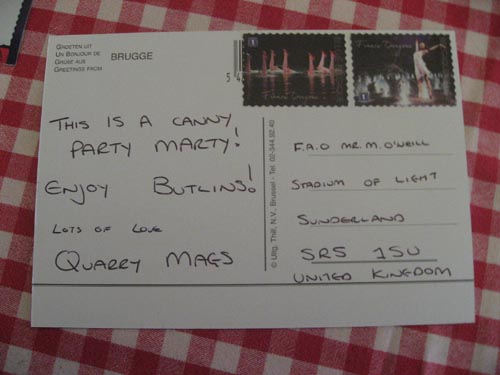 GROETEN UIT
UN BONJOUR DE
GRUSE AUS
GREETINGS FROM
BRUGGE
THIS IS A CANNY
PARTY MARTY!
ENJOY BUTLINS!
LOTS OF LOVE
QUARRY MAGS
© Uitg. Thill, N.V., Brussel - Tel. 02-344.92.40
1
1
F.A.O MR. M. O'NEILL
STADIUM OF LIGHT
SUNDERLAND
SR5 1SU
UNITED KINGDOM